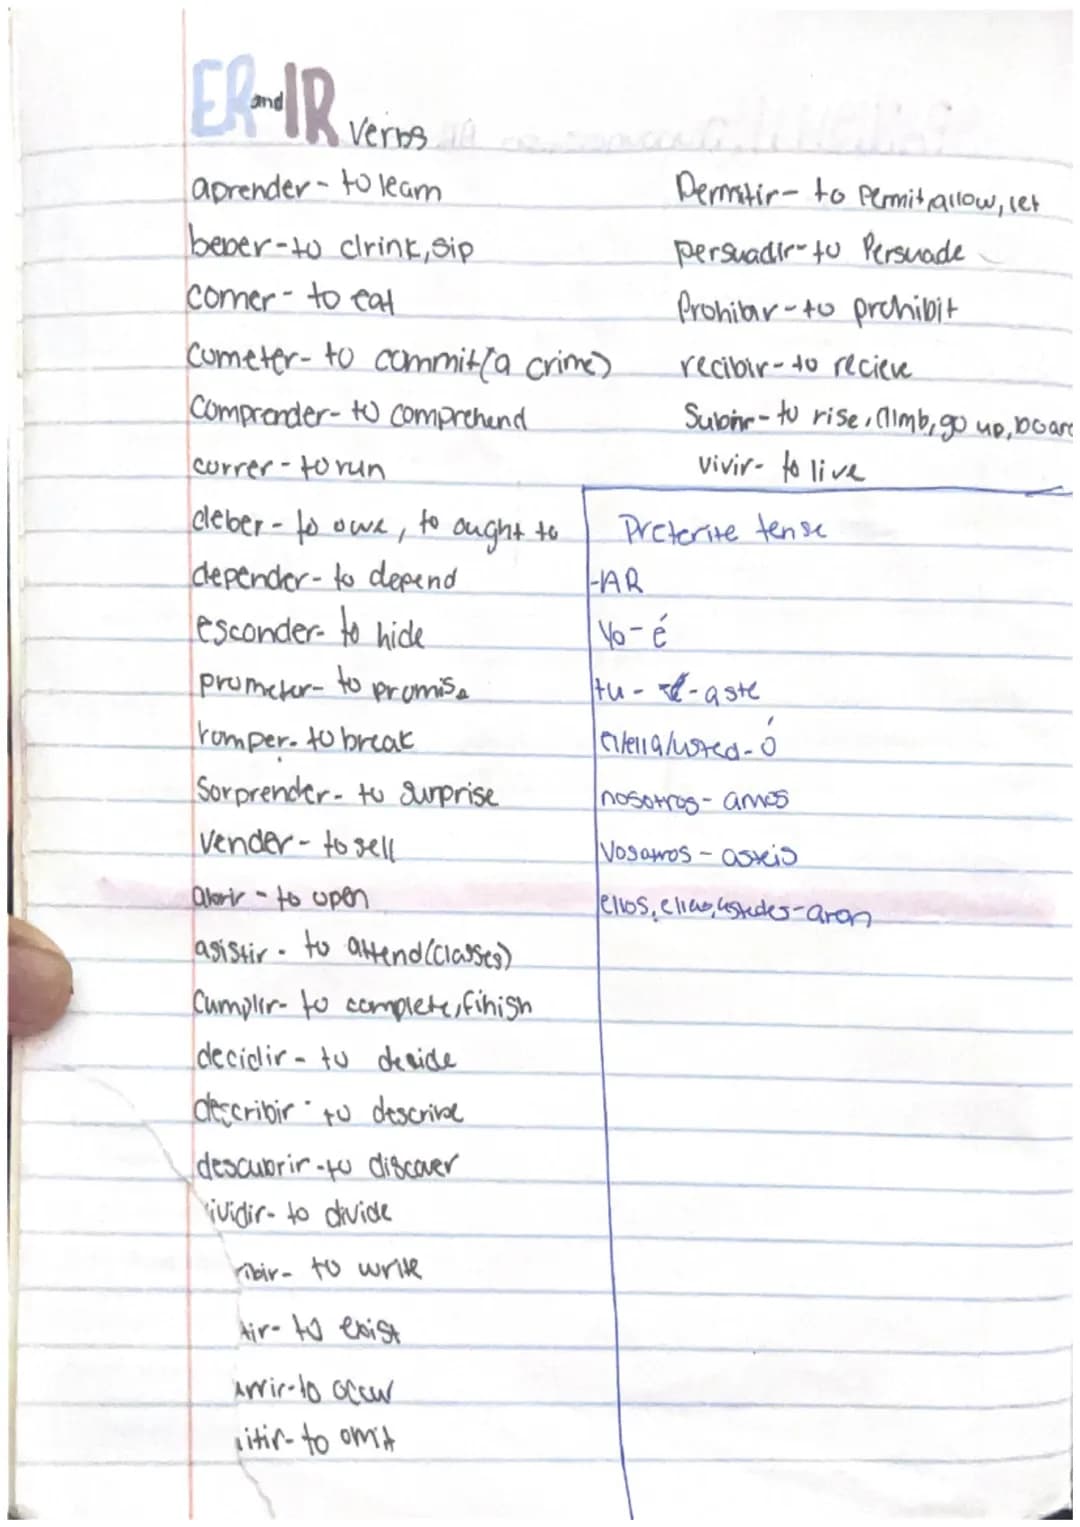 ER and IR verbs
aprender - to learn
beber - to drink, sip
comer - to eat
cometer - to commit (a crime)
Comprender - to comprehend
correr - to run
deber - to owe, to ought to
depender - to depend
esconder - to hide
prometer - to promise
romper - to break
Sorprender - to surprise
Vender - to sell
abrir - to open
asistir - to attend (classes)
Cumplir - to complete, finish
decidir - to decide
describir - to describe
descubrir - to discover
ividir - to divide
ribir - to write
tir - to exist
urrir - to occur
itir - to omit
Permitir - to Permit, allow, let
persuadir - to Persuade
Prohibir - to prohibit
recibir - to recieve
Subir - to rise, climb, go up, board
vivir - to live
Preterite tense
-AR
Yo - é
tu - aste
el/ella/usted - ó
nosotros - amos
Vosotros - asteis
ellos, ellas, ustedes - aron